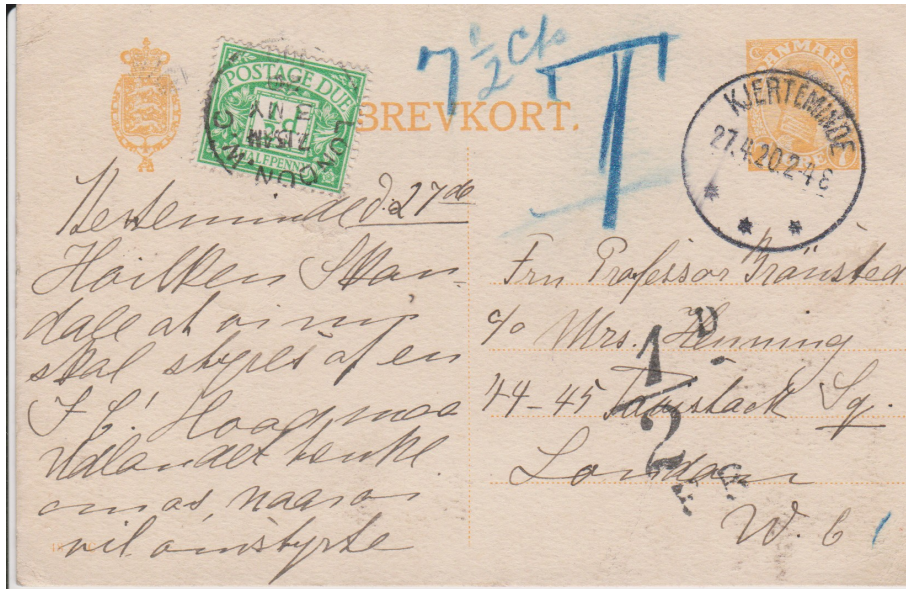 7 1/2 Cts
T
POSTAGE DUE
HALFPENNY
LONDON W.C
7.15AM
3 MY
BREVKORT.
DANMARK
KJERTEMINDE
27.4.20.2-4 E
Kerteminde d. 27de
Hvilken Skan-
dale at vi nu
skal styres af en
Hvad maa
Udlandet tænke
om os, naar vi
vil omstyrte
Fru Professor Brönsted
c/o Mrs. Henning
44-45 Tavistock Sq.
London
W. C 1
1D/2